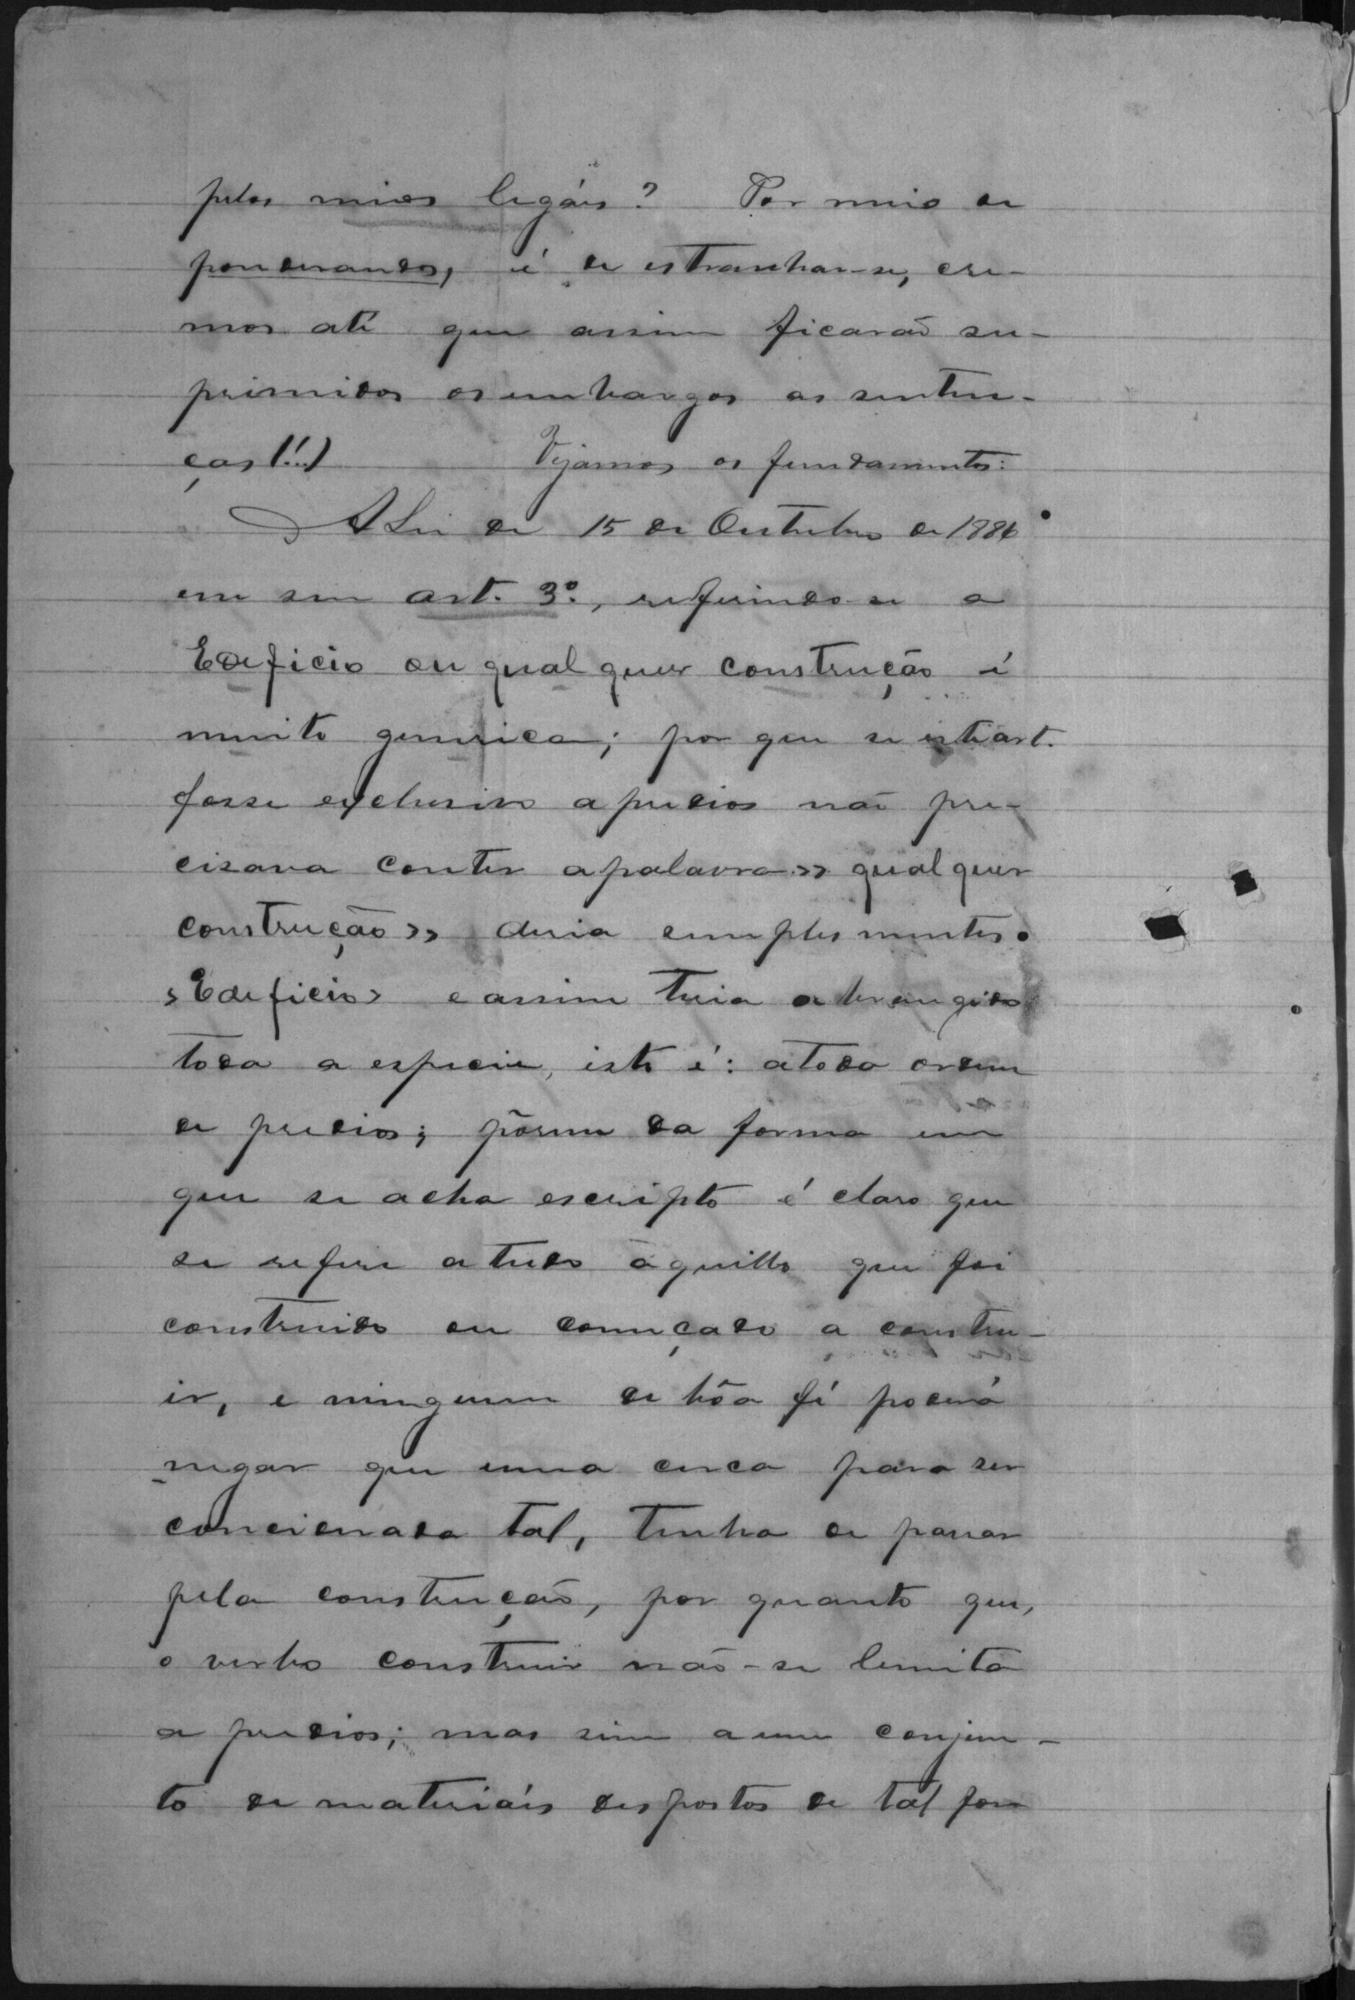 pelos meios legáis? Por meio de
ponderandos, é de estranhar-se, cre-
mos até que assim ficarão su-
primidos os embargos as senten-
ças (!...)  Vejamos os fundamentos:
A Lei de 15 de Outubro de 1886
em seu art. 3º., referindo-se a
Edeficio ou qual quer construção é
muito generica; por que se este art.
fosse exclusivo a predios não pre-
cizava conter a palavra »» qual quer
construção »» deria cimples mentes.
»Edeficio» e assim teria abrangido
toda a especie, isto é: a toda ordem
de predios; pórem da forma em
que se acha escripto é claro que
se refere a tudo aquillo que foi
construido ou começado a constru-
ir, e ninguem de bôa fé poderá
negar que uma cerca para ser
concierada tal, tenha de passar
pela construção, por quanto que,
o verbo construir não-se lemita
a predios; mas sim a um conjun-
to de materiáis despostos de tál for